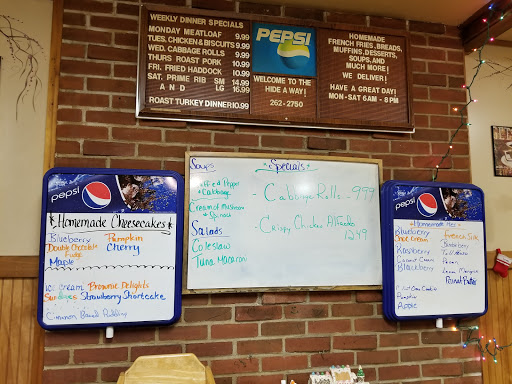 WEEKLY DINNER SPECIALS
MONDAY MEATLOAF 9.99
TUES. CHICKEN & BISCUITS 9.99
WED. CABBAGE ROLLS 9.99
THURS ROAST PORK 10.99
FRI. FRIED HADDOCK 10.99
SAT. PRIME RIB SM 14.99
AND LG 16.99
ROAST TURKEY DINNER 10.99
PEPSI
WELCOME TO THE
HIDE A WAY!
262-2750
HOMEMADE
FRENCH FRIES, BREADS,
MUFFINS, DESSERTS,
SOUPS, AND
MUCH MORE!
WE DELIVER!
HAVE A GREAT DAY!
MON-SAT 6AM - 8PM
pepsi
Homemade Cheesecakes
Blueberry Pumpkin
Double Chocolate Cherry
Fudge
Maple
Ice cream Brownie Delights
Sundaes Strawberry Shortcake
Bread Pudding
Soups
Pepper
Cabbage
Cream of Mushroom
Spinach
Salads
Coleslaw
Tuna Macaroni
Specials
- Cabbage Rolls - 9.99
- Crispy Chicken Alfredo
12.49
pepsi
Homemade
Blueberry
Raspberry
Coconut Cream
Blackberry
Pumpkin
Apple
Pecan
Peanut Butter